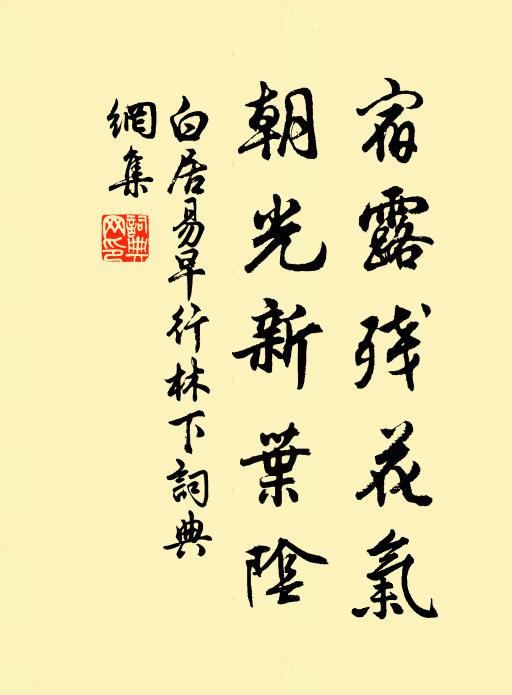 宿露殘花氣
朝光新葉陰
白居易早行林下詞典
網集
詞典網印